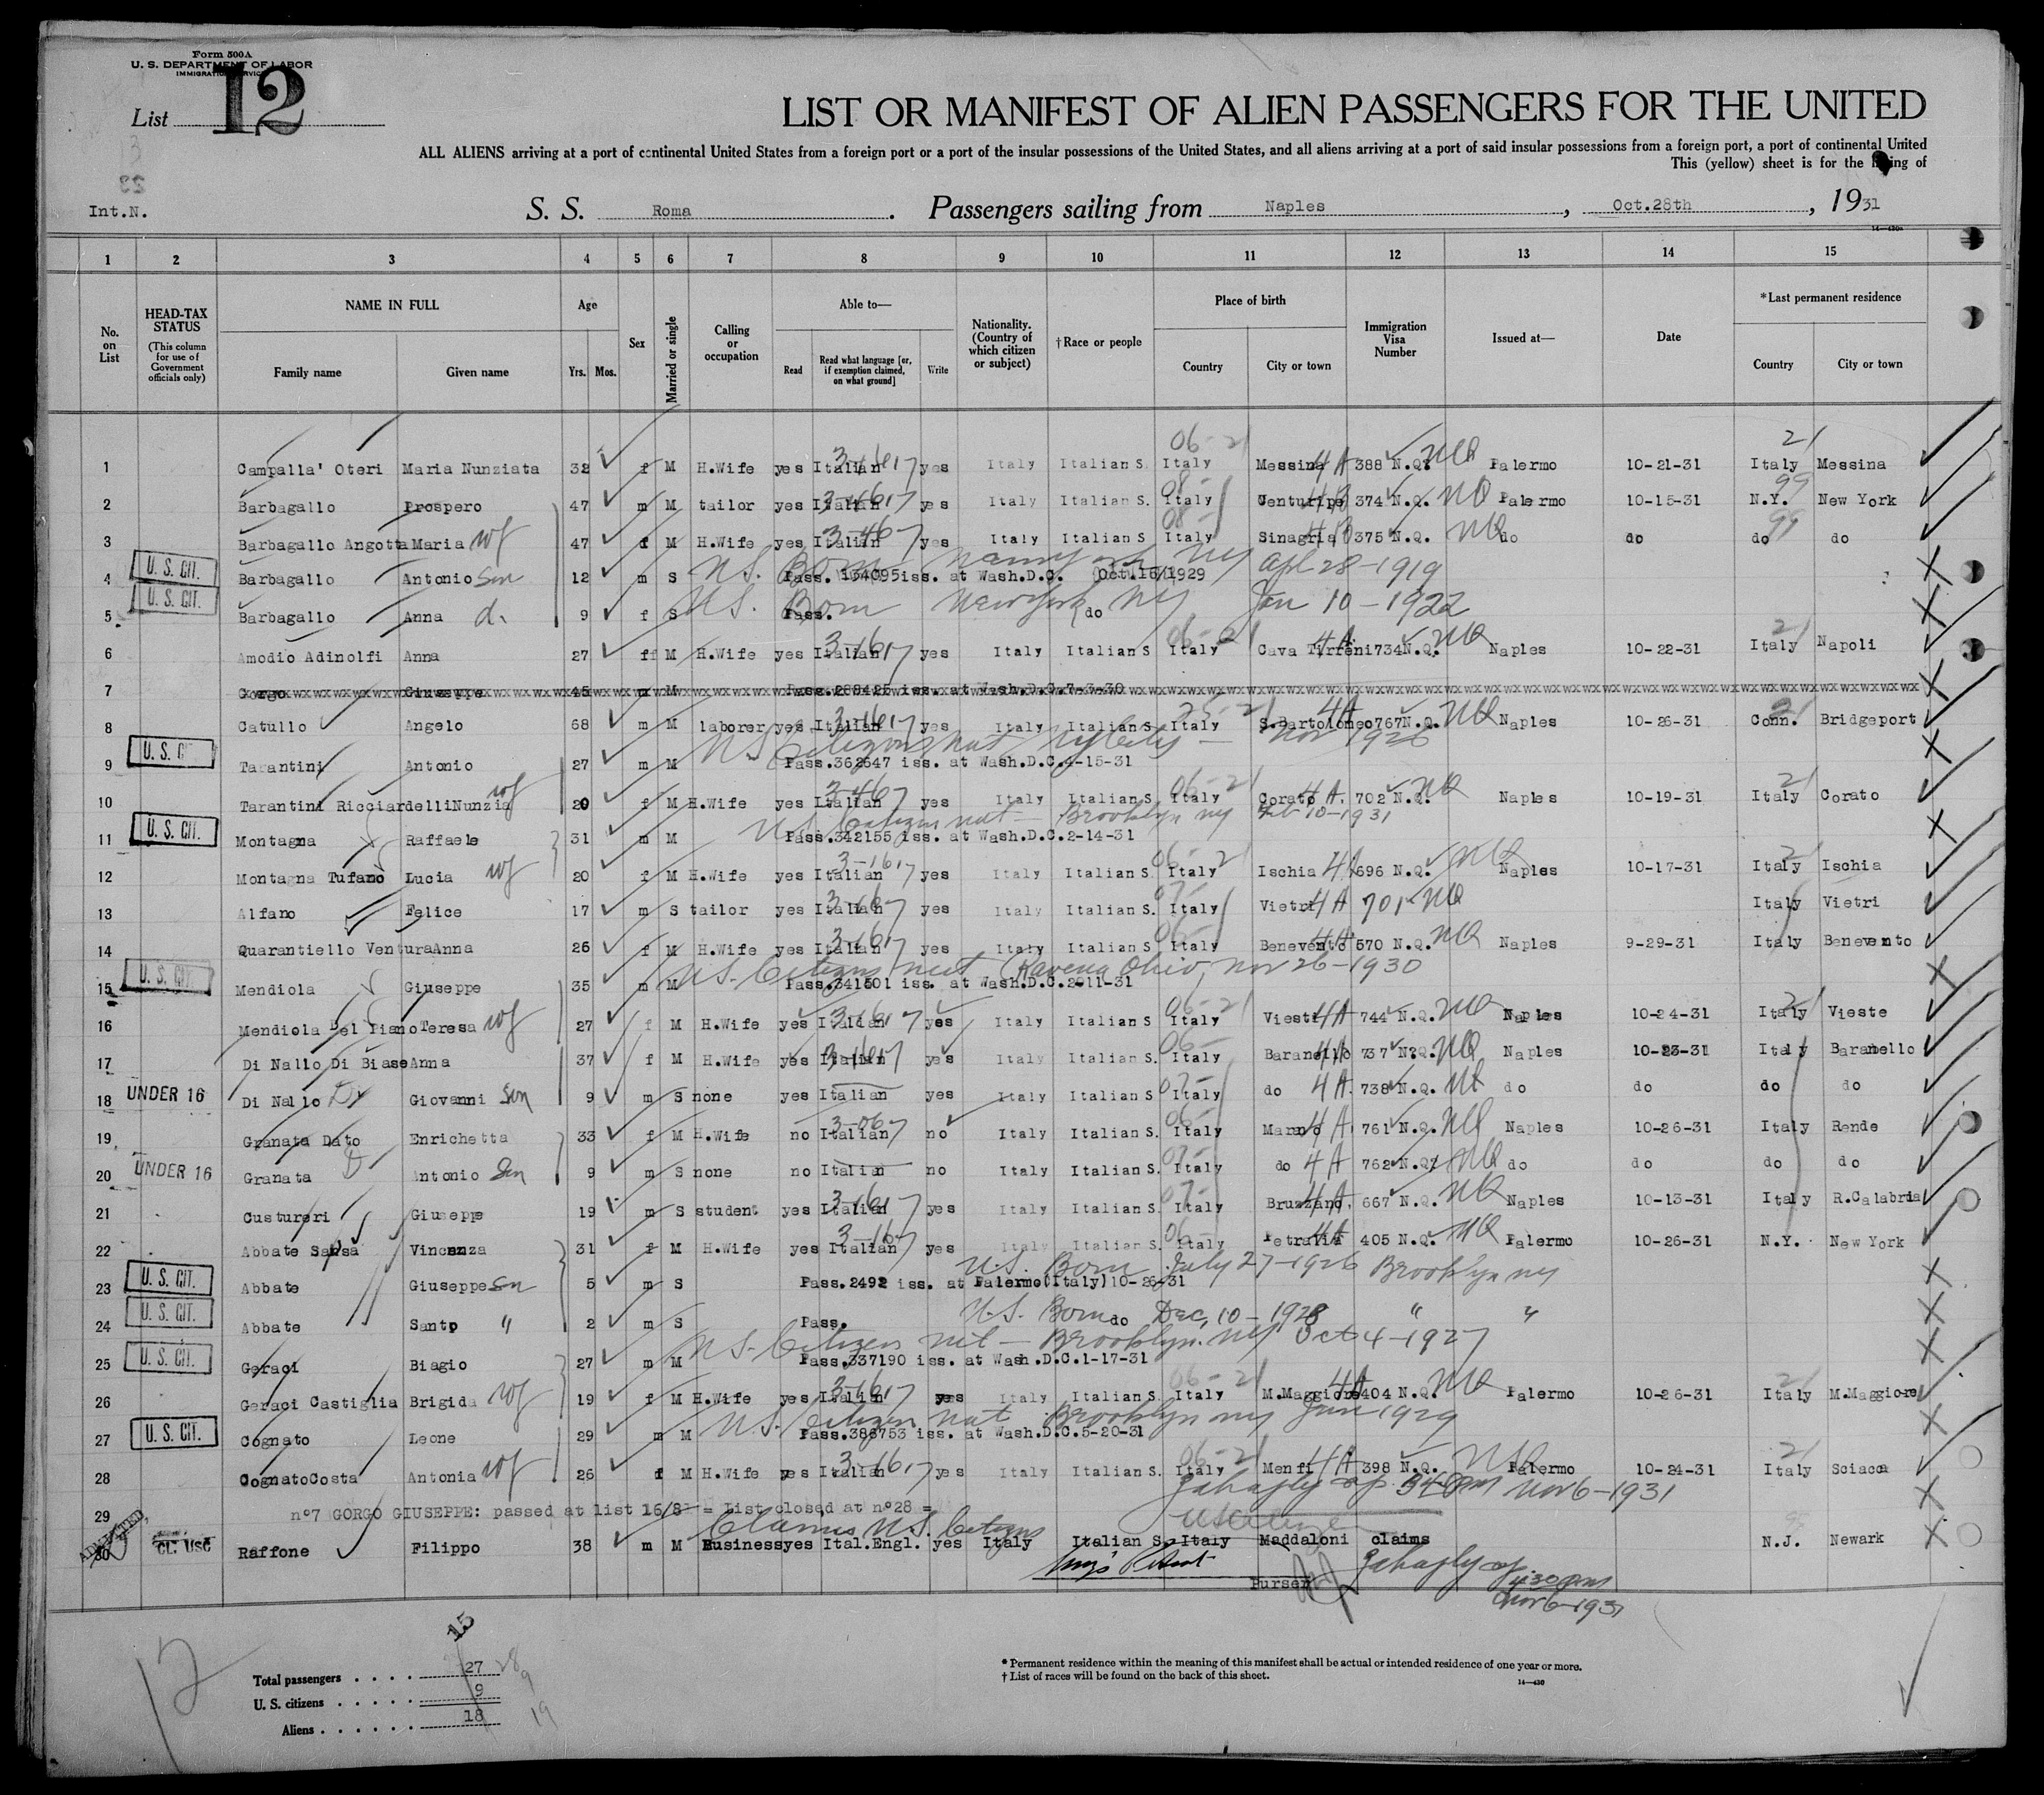 Form 500A
U. S. DEPARTMENT OF LABOR
IMMIGRATION SERVICE
List 12
LIST OR MANIFEST OF ALIEN PASSENGERS FOR THE UNITED
ALL ALIENS arriving at a port of continental United States from a foreign port or a port of the insular possessions of the United States, and all aliens arriving at a port of said insular possessions from a foreign port, a port of continental United
This (yellow) sheet is for the listing of
Int.N.
S. S. Roma. Passengers sailing from Naples, Oct.28th, 1931
1 2 3 4 5 6 7 8 9 10 11 12 13 14 15
No. on List
HEAD-TAX STATUS
(This column for use of Government officials only)
NAME IN FULL
Family name Given name
Age
Yrs. Mos.
Sex
Married or single
Calling or occupation
Able to—
Read
Read what language [or, if exemption claimed, on what ground]
Write
Nationality. (Country of which citizen or subject)
†Race or people
Place of birth
Country City or town
Immigration Visa Number
Issued at—
Date
*Last permanent residence
Country City or town
1 Campalla' Oteri Maria Nunziata 32 f M H.Wife yes Italian yes Italy Italian S. Italy Messina 4A 388 N.Q. NQ Palermo 10-21-31 Italy Messina
2 Barbagallo Prospero 47 m M tailor yes Italian yes Italy Italian S. Italy Centuripe 374 N.Q. NQ Palermo 10-15-31 N.Y. New York
3 Barbagallo Angotta Maria wf 47 f M H.Wife yes Italian yes Italy Italian S Italy Sinagria 375 N.Q. NQ do do do do
4 U. S. CIT. Barbagallo Antonio son 12 m S U.S. Born NY Apl 28-1919
Pass. 134095 iss. at Wash.D.C. Oct.16/1929
5 U. S. CIT. Barbagallo Anna d. 9 f S U.S. Born New York NY Jan 10-1922
Pass. do
6 Amodio Adinolfi Anna 27 f M H.Wife yes Italian yes Italy Italian S Italy Cava Tirreni 4A 734 N.Q. NQ Naples 10-22-31 Italy Napoli
7 Gorgo Giuseppe 45 m M Pass.288425 iss. at Wash.D.C.7-3-30
8 Catullo Angelo 68 m M laborer yes Italian yes Italy Italian S. Italy S.Bartolomeo 4A 767 N.Q. NQ Naples 10-26-31 Conn. Bridgeport
9 Tarantini Antonio 27 m M U.S. Citizen nat NY City - Nov 1926
Pass.362647 iss. at Wash.D.C.4-15-31
10 Tarantini Ricciardelli Nunzia wf 20 f M H.Wife yes Italian yes Italy Italian S. Italy Corato 4A. 702 N.Q. NQ Naples 10-19-31 Italy Corato
11 U. S. CIT. Montagna Raffaele 31 m M U.S. Citizen nat - Brooklyn ny Feb 10-1931
Pass.342155 iss. at Wash.D.C.2-14-31
12 Montagna Tufano Lucia wf 20 f M H.Wife yes Italian yes Italy Italian S. Italy Ischia 4A 696 N.Q. NQ Naples 10-17-31 Italy Ischia
13 Alfano Felice 17 m S tailor yes Italian yes Italy Italian S. Italy Vietri 4A 701 NQ Italy Vietri
14 Quarantiello Ventura Anna 26 f M H.Wife yes Italian yes Italy Italian S. Italy Benevento 4A 570 N.Q. NQ Naples 9-29-31 Italy Benevento
15 U. S. CIT. Mendiola Giuseppe 35 m M U.S. Citizen nat Ravena Ohio, Nov 26-1930
Pass.341501 iss. at Wash.D.C.2-11-31
16 Mendiola Del Piano Teresa wf 27 f M H.Wife yes Italian yes Italy Italian S Italy Vieste 4A 744 N.Q. NQ Naples 10-24-31 Italy Vieste
17 Di Nallo Di Biase Anna 37 f M H.Wife yes Italian yes Italy Italian S. Italy Baranello 4A 737 N.Q. NQ Naples 10-23-31 Italy Baranello
18 UNDER 16 Di Nallo Giovanni son 9 m S none yes Italian yes Italy Italian S Italy do 4A. 738 N.Q. NQ do do do do
19 Granata Dato Enrichetta 33 f M H.Wife no Italian no Italy Italian S. Italy 4A 761 N.Q. NQ Naples 10-26-31 Italy Rende
20 UNDER 16 Granata Antonio son 9 m S none no Italian no Italy Italian S. Italy do 4A 762 N.Q. NQ do do do do
21 Custureri Giuseppe 19 m S student yes Italian yes Italy Italian S. Italy Bruzzano 4A 667 N.Q. NQ Naples 10-13-31 Italy R.Calabria
22 Abbate Sansa Vincenza 31 f M H.Wife yes Italian yes Italy Italian S. Italy Petralia 4A 405 N.Q. NQ Palermo 10-26-31 N.Y. New York
23 U. S. CIT. Abbate Giuseppe son 5 m S U.S. Born July 27-1926 Brooklyn ny
Pass.2492 iss. at Palermo(Italy)10-26-31
24 U. S. CIT. Abbate Santo " 2 m S Pass. do U.S. Born Dec, 10-1928 " "
25 U. S. CIT. Geraci Biagio 27 m M U.S. Citizen nat - Brooklyn. ny Oct 4-1927
Pass.337190 iss. at Wash.D.C.1-17-31
26 Geraci Castiglia Brigida wf 19 f M H.Wife yes Italian yes Italy Italian S. Italy M.Maggiore 4A 404 N.Q. NQ Palermo 10-26-31 Italy M.Maggiore
27 U. S. CIT. Cognato Leone 29 m M U.S. Citizen nat Brooklyn ny Jun 1929
Pass.386753 iss. at Wash.D.C.5-20-31
28 Cognato Costa Antonia wf 26 f M H.Wife yes Italian yes Italy Italian S. Italy Menfi 4A 398 N.Q. NQ Palermo 10-24-31 Italy Sciacca
Nov 6-1931
29 n°7 GORGO GIUSEPPE: passed at list 16/8 = List closed at n°28 =
30 ADMITTED CL. USC Raffone Filippo 38 m M Business yes Ital.Engl. yes Italy Italian S. Italy Maddaloni claims N.J. Newark
Claims U.S. Citizen
Purser
4:30 pm
Nov 6-1931
15
12
Total passengers . . . . 27 28
U. S. citizens . . . . . 9 9
Aliens . . . . . . 18 19
* Permanent residence within the meaning of this manifest shall be actual or intended residence of one year or more.
† List of races will be found on the back of this sheet.
14—430